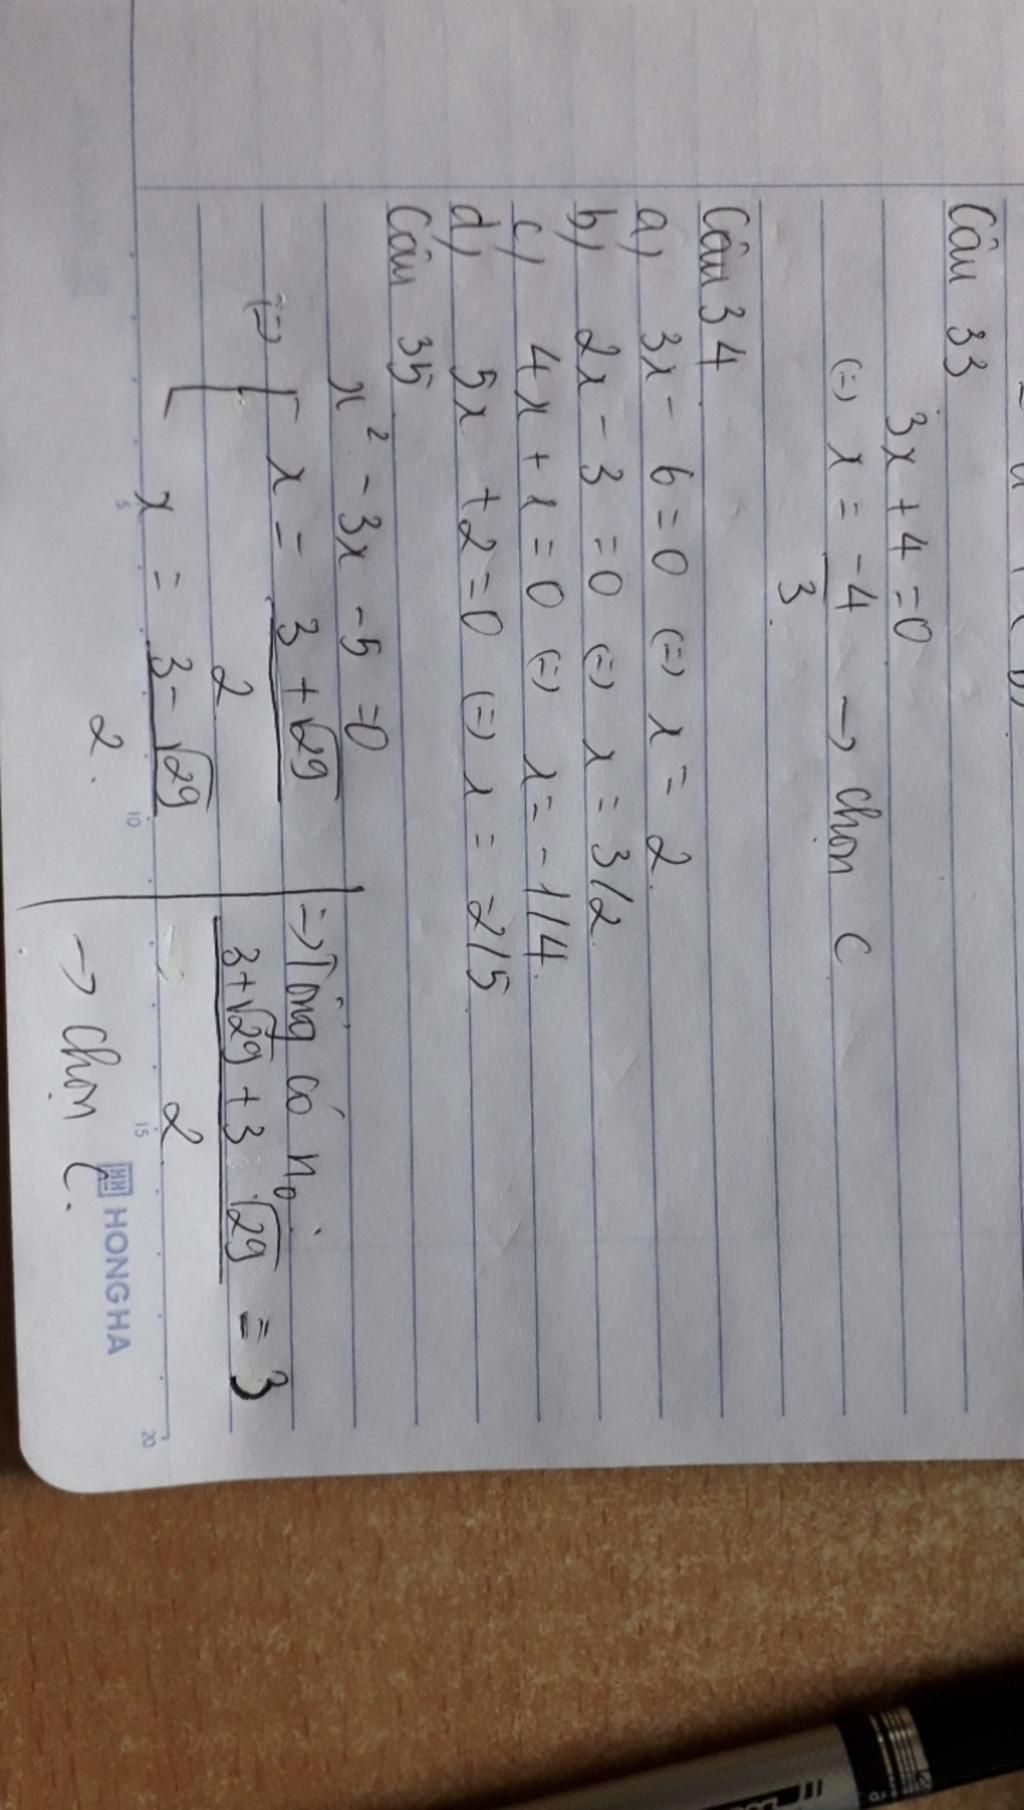 Câu 33
3x + 4 = 0
(=) x = -4/3 → chọn C
Câu 34
a) 3x - 6 = 0 (=) x = 2.
b) 2x - 3 = 0 (=) x = 3/2.
c) 4x + 1 = 0 (=) x = -1/4.
d) 5x + 2 = 0 (=) x = -2/5
Câu 35
x² - 3x - 5 = 0
(=) [ x = (3 + √29)/2
x = (3 - √29)/2.
=> Tổng có n₀.
(3 + √29 + 3 √29)/2 = 3
→ Chọn C.
5 10 15 20
HH HONG HA